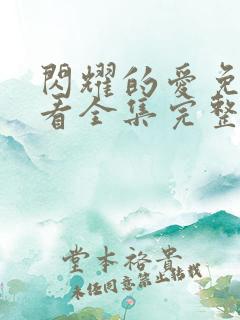 閃耀的愛免
看全集完整
堂本裕貴
未经同意禁止转载